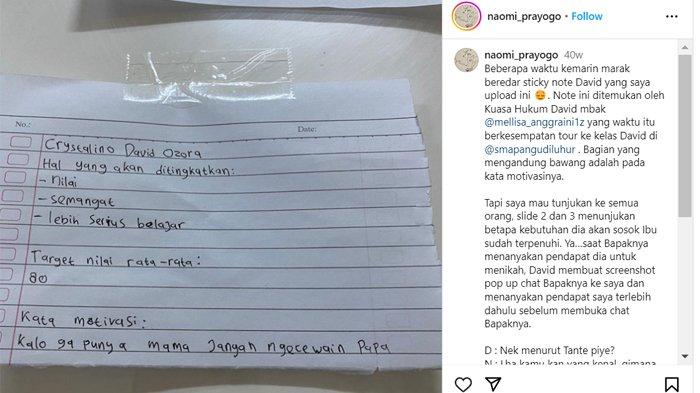 No.:
Date:
Crystalino David Ozora
Hal yang akan ditingkatkan:
- nilai
- semangat
- lebih serius belajar
Target nilai rata-rata:
80
Kata motivasi:
Kalo ga punya mama Jangan ngecewain Papa
naomi_prayogo • Follow
naomi_prayogo 40w
Beberapa waktu kemarin marak
beredar sticky note David yang saya
upload ini 😔. Note ini ditemukan oleh
Kuasa Hukum David mbak
@mellisa_anggraini1z yang waktu itu
berkesempatan tour ke kelas David di
@smapangudiluhur . Bagian yang
mengandung bawang adalah pada
kata motivasinya.
Tapi saya mau tunjukan ke semua
orang, slide 2 dan 3 menunjukan
betapa kebutuhan dia akan sosok Ibu
sudah terpenuhi. Ya...saat Bapaknya
menanyakan pendapat dia untuk
menikah, David membuat screenshot
pop up chat Bapaknya ke saya dan
menanyakan pendapat saya terlebih
dahulu sebelum membuka chat
Bapaknya.
D : Nek menurut Tante piye?
N : Lha kamu kan yang kenal, gimana